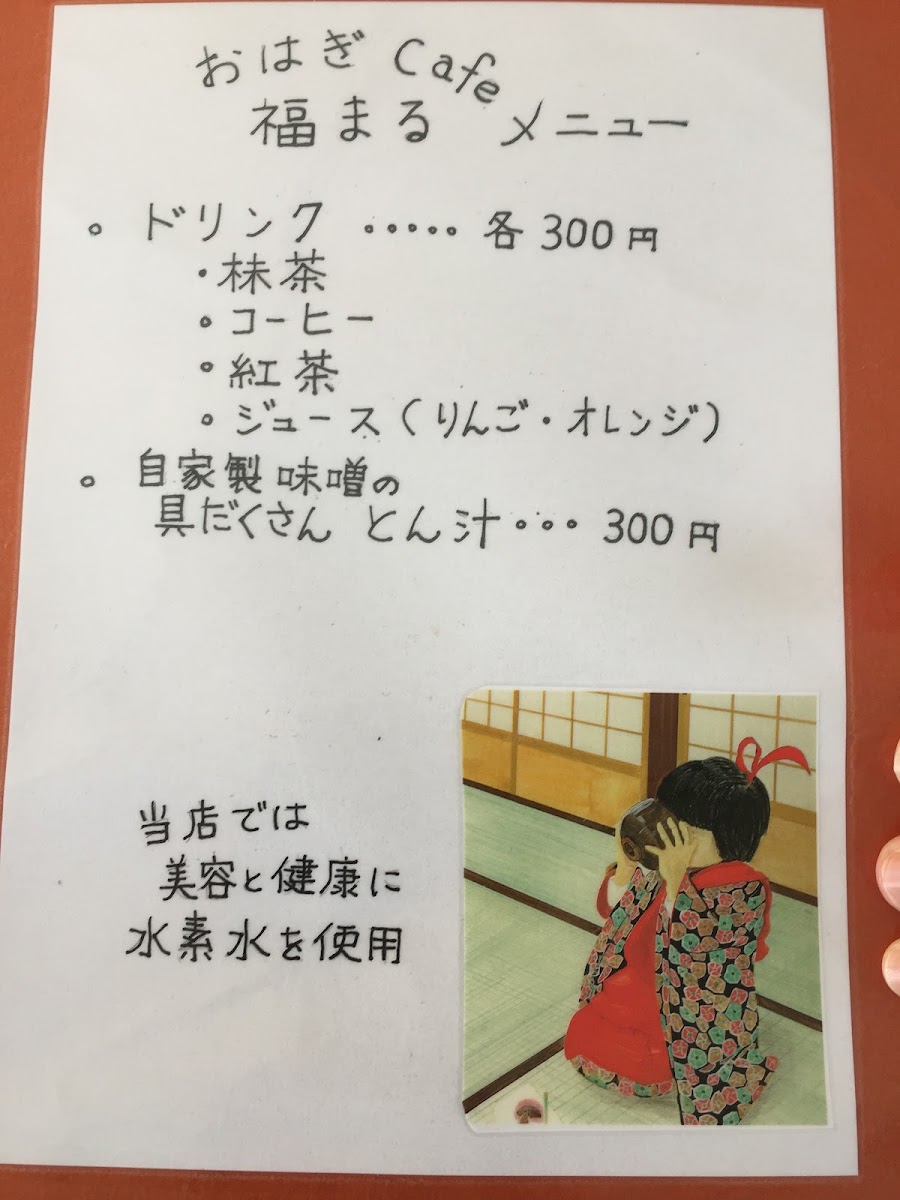 おはぎ Cafe
福まる メニュー
。ドリンク ・・・・・ 各 300 円
・抹茶
。コーヒー
。紅茶
。ジュース(りんご・オレンジ)
。自家製 味噌の
具だくさん とん汁・・・ 300 円
当店では
美容と健康に
水素水を使用